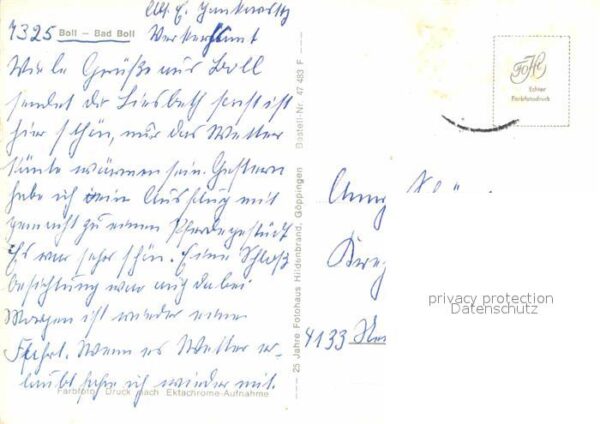 7325 Boll - Bad Boll
Viele Grüße aus Boll
sendet dir Liesbeth sonst ist
hier schön, nur das Wetter
könnte wärmer sein. Gestern
habe ich ein Ausflug mit
gemacht zu einem Pferdegestüt
Es war sehr schön. Eine Schloß
besichtigung war auch dabei
Morgen ist wieder eine
Fahrt. Wenn es Wetter er-
laubt fahre ich wieder mit.
Farbfoto Druck nach Ektachrome-Aufnahme
25 Jahre Fotohaus Hildenbrand, Göppingen
Bestell-Nr. 47 483 F
Echter
Farbfotodruck
4133
privacy protection
Datenschutz